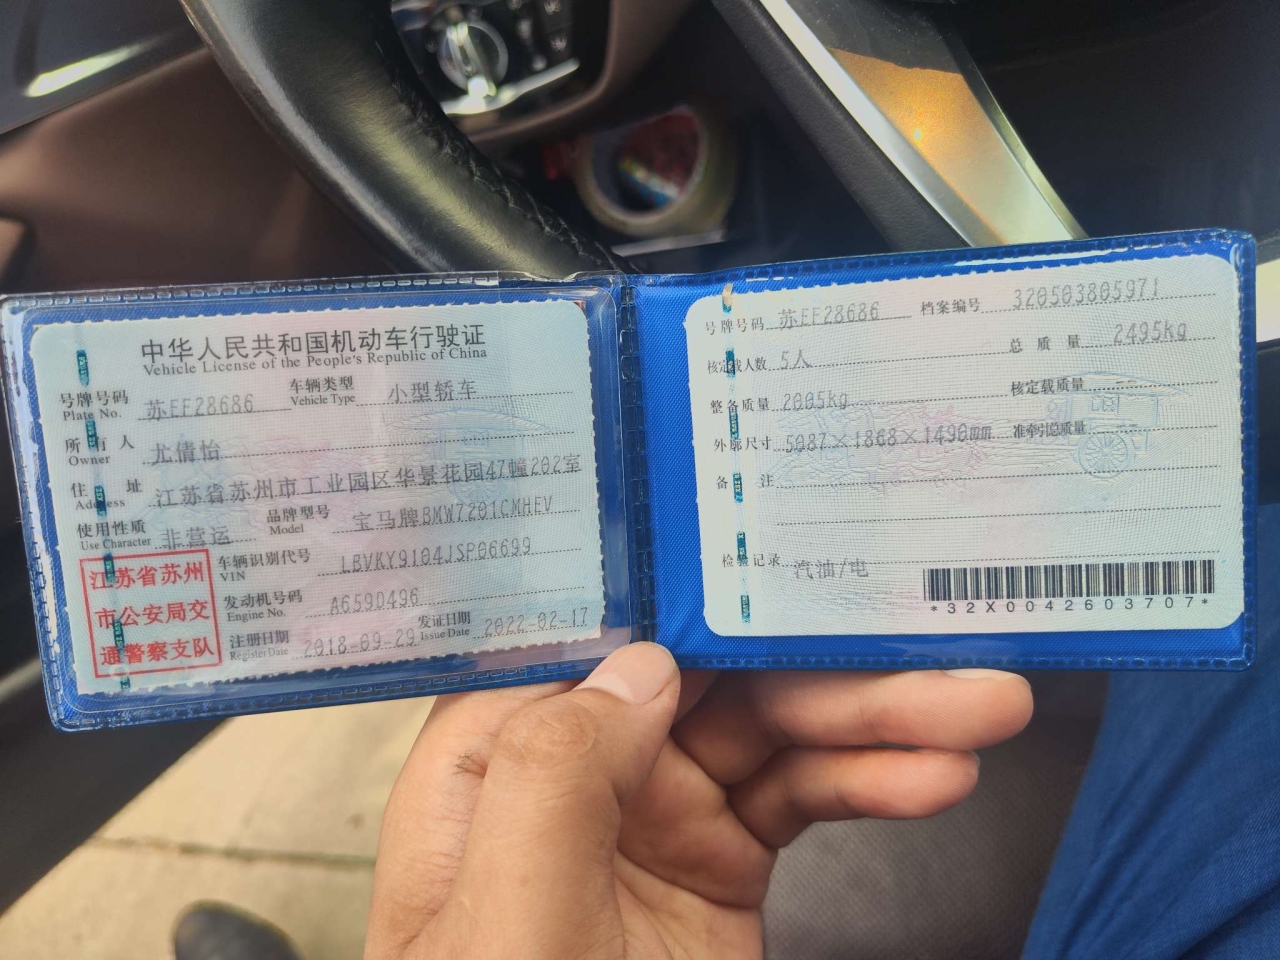 中华人民共和国机动车行驶证
Vehicle License of the People's Republic of China
号牌号码 苏EF28686 车辆类型 小型轿车
Plate No. Vehicle Type
所有人 尤倩怡
Owner
住址 江苏省苏州市工业园区华景花园47幢202室
Address
使用性质 非营运 品牌型号 宝马牌BMW7201CMHEV
Use Character Model
车辆识别代号 LBVKY9104JSP06699
VIN
发动机号码 A6590496
Engine No.
注册日期 2018-09-29 发证日期 2022-02-17
Register Date Issue Date
江苏省苏州
市公安局交
通警察支队
号牌号码 苏EF28686 档案编号 320503805971
核定载人数 5人 总质量 2495kg
整备质量 2005kg 核定载质量 --
外廓尺寸 5087×1868×1490mm 准牵引总质量 --
备注
检验记录 汽油/电
*32X0042603707*